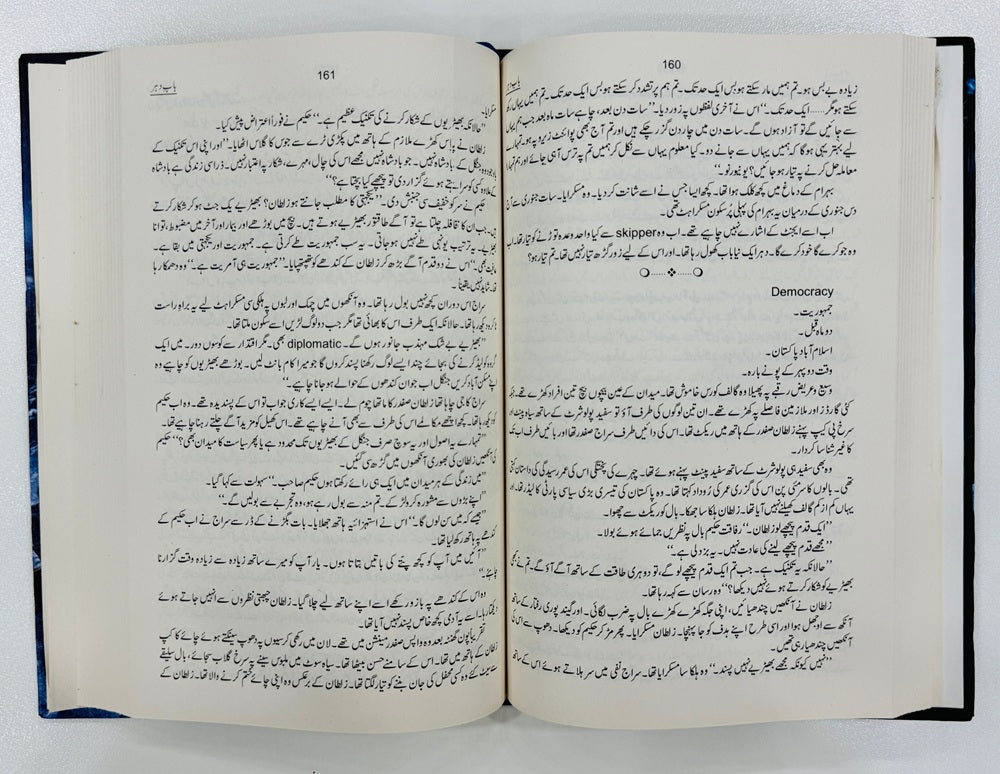 160
باب دہر
زیادہ بے بس ہو۔ تم ہمیں مار سکتے ہو بس ایک حد تک۔ تم ہم پر تشدد کر سکتے ہو بس ایک حد تک۔ تم ہمیں یہاں
سکتے ہو مگر...... ایک حد تک۔“ اس نے آخری لفظوں پہ زور دیا۔ ”سات دن بعد، چاہے سات ماہ بعد جب ہم یہاں
سے جائیں گے تو آزاد ہوں گے۔ سات دن میں چار دن گزر چکے ہیں اور تم آج بھی پوائنٹ زیرو پہ ہو۔ تمہارے
لیے بہتر یہی ہو گا کہ ہمیں یہاں سے جانے دو۔ کیا معلوم یہاں سے نکل کر ہمیں تم پہ ترس آ ہی جائے اور ہم تمہارا
معاملہ حل کرنے پہ تیار ہو جائیں؟ یو نیور نو۔“
بہرام کے دماغ میں کچھ کلک ہوا تھا۔ کچھ ایسا جس نے اسے شانت کر دیا۔ وہ مسکرایا۔ سات جنوری سے آج
دس جنوری کے درمیان یہ بہرام کی پہلی پُرسکون مسکراہٹ تھی۔
اب اسے ایجنٹ کے اشارے نہیں چاہیے تھے۔ اب وہ skipper سے کیا واحد وعدہ توڑنے کو تیار تھا۔ اب
وہ جو کرے گا خود کرے گا۔ دہر ایک نیا باب کھول رہا تھا۔ اور اس کے لیے زور گڑھ تیار نہیں تھا۔ تم تیار ہو؟
Democracy
جمہوریت۔
دو ماہ قبل۔
اسلام آباد پاکستان۔
وقت دوپہر کے پونے بارہ۔
وسیع و عریض رقبے پہ پھیلا وہ گالف کورس خاموش تھا۔ میدان کے عین بیچوں بیچ تین افراد کھڑے تھے جبکہ
کئی گارڈز اور ملازمین فاصلے پہ کھڑے تھے۔ ان تین لوگوں کی طرف آؤ تو سفید پولو شرٹ کے ساتھ سیاہ پینٹ اور
سرخ پی کیپ پہنے زلطان صفدر کے ہاتھ میں ریکٹ تھا۔ اس کی دائیں طرف سراج صفدر تھا اور بائیں طرف اب تک
کا غیر شناسا کردار۔
وہ بھی سفید ہی پولو شرٹ کے ساتھ سفید پینٹ پہنے ہوئے تھا۔ چہرے کی پختگی اس کی عمر رسیدگی کی داستان کہتی
تھی۔ بالوں کا سرمئی پن اس کی گزری عمر کی روداد کہتا تھا۔ وہ پاکستان کی تیسری بڑی سیاسی پارٹی کا لیڈر تھا، اور
یہاں کم از کم گالف کھیلنے نہیں آیا تھا۔ زلطان ہلکا سا جھکا۔ بال کو ریکٹ سے چھوا۔
”ایک قدم پیچھے لو زلطان۔“ رفاقت حکیم بال پہ نظریں جمائے ہوئے بولا۔
”مجھے قدم پیچھے لینے کی عادت نہیں۔ یہ بزدلی ہے۔“
”حالانکہ یہ تکنیک ہے۔ جب تم ایک قدم پیچھے لو گے، تو دوہری طاقت کے ساتھ آگے آؤ گے۔ تم نے کبھی
بھیڑیے کو شکار کرتے ہوئے نہیں دیکھا؟“ وہ رسان سے کہہ رہا تھا۔
زلطان نے آنکھیں چندھیائیں، اپنی جگہ کھڑے کھڑے بال پہ ضرب لگائی۔ اور گیند پوری رفتار کے ساتھ
آنکھ سے اوجھل ہوا اور اسی طرح اپنے ہدف کو جا پہنچا۔ زلطان مسکرایا۔ پھر مڑ کر حکیم کو دیکھا۔ دھوپ سے اس کی
آنکھیں چندھیا رہی تھیں۔
”نہیں کیونکہ مجھے بھیڑیے نہیں پسند۔“ وہ ہلکا سا مسکرایا تھا۔ سراج نفی میں سر ہلاتے ہوئے اس کے ساتھ
161
باب دہر
مسکرایا۔
”حالانکہ بھیڑیوں کے شکار کرنے کی تکنیک عظیم ہے۔“ حکیم نے فوراً اعتراض پیش کیا۔
زلطان نے پاس کھڑے ملازم کے ہاتھ میں پکڑی ٹرے سے جوس کا گلاس اٹھایا۔ ”اور اپنی اس تکنیک کے
باوجود وہ جنگل کے بادشاہ نہیں۔ جو بادشاہ نہیں مجھے اس کی چال، مہرے، شکار پہ اعتبار نہیں۔ ذرا سی زندگی ہے بادشاہ
کے علاوہ کسی کو سراہتے ہوئے گزار دی تو پیچھے کیا بچتا ہے؟“
حکیم نے سر کو خفیف سی جنبش دی۔ ”یکجہتی کا مطلب جانتے ہو زلطان؟ بھیڑیے یک جٹ ہو کر شکار کرتے
ہیں۔ جب ان کا قافلہ چلتا ہے تو آگے طاقتور بھیڑیے ہوتے ہیں۔ بیچ میں بوڑھے اور بیمار اور آخر میں مضبوط، توانا
بھیڑیے۔ یہ ترتیب یونہی طے نہیں ہو جاتی۔ یہ سب جمہوریت طے کرتی ہے۔ جمہوریت اور یکجہتی میں بقا ہے۔
عافیت بھی۔“ اس نے دو قدم آگے بڑھ کر زلطان کے کندھے کو تھپتھپایا۔ ”جمہوریت ہی آمریت ہے۔“ وہ دھمکا رہا
تھا۔ شاید نہیں یقیناً۔
سراج اس دوران کچھ نہیں بول رہا تھا۔ وہ آنکھوں میں چمک اور لبوں پہ ہلکی سی مسکراہٹ لیے یہ براہِ راست
ڈرامہ دیکھ رہا تھا۔ حالانکہ ایک طرف اس کا بھائی تھا مگر جب دو لوگ لڑیں اسے سکون ملتا تھا۔
”بھیڑیے بے شک مہذب جانور ہوں گے۔ diplomatic بھی۔ مگر اقتدار سے کوسوں دور۔ میں ایک
گروہ کو لیڈ کرنے کی بجائے چند ایسے لوگ رکھنا پسند کروں گا جو میرا کام بانٹ لیں۔ بوڑھے بھیڑیوں کو چاہیے وہ
اپنے مسکن آباد کریں جنگل اب جوان کندھوں کے حوالے ہو جانا چاہیے۔“
سراج کا جی چاہا تھا زلطان صفدر کا ماتھا چوم لے۔ ایسے ایسے کاری جواب تو اس کے پسندیدہ تھے۔ وہ اب حکیم
کو دیکھ رہا تھا۔ کچھ اچھے، مکالمے اس کی طرف سے بھی آنے چاہیے تھے۔ اس کھیل کو مزید آگے چلتے رہنا چاہیے تھا۔
”تمہارے یہ اصول اور یہ سوچ صرف جنگل کے بھیڑیوں تک محدود ہے یا پھر سیاست کا میدان بھی؟“ حکیم
کی آنکھیں زلطان کی بھوری آنکھوں میں گڑھ سی گئیں۔
”میں زندگی کے ہر میدان میں ایک ہی رائے رکھتا ہوں حکیم صاحب۔“ سہولت سے کہا گیا۔
”اپنے بڑوں سے مشورہ کر لو لڑکے۔ تم منہ سے بول رہے ہو، وہ تجربے سے بولیں گے۔“
”جیسے کہ میں سن لوں گا۔“ اس نے استہزائیہ ہاتھ جھلایا۔ بات بگڑنے کے ڈر سے سراج نے اب حکیم کے
کندھے پہ ہاتھ رکھ لیا تھا۔
”آئیں میں آپ کو کچھ پتے کی باتیں بتاتا ہوں۔ یار آپ کو میرے ساتھ زیادہ سے زیادہ وقت گزارنا
چاہیے۔“
وہ اس کے کندھے پہ بازو رکھے اسے اپنے ساتھ لیے چلا گیا۔ زلطان چبھتی نظروں سے انہیں جاتے ہوئے
دیکھتا رہا۔ اسے یہ آدمی کچھ خاص پسند نہیں آیا تھا۔
تقریباً پون گھنٹہ بعد وہ واپس صفدر مینشن میں تھے۔ لان میں رکھی کرسیوں پہ دھوپ سینکتے ہوئے چائے کا کپ
زلطان کے ہاتھ میں تھا۔ اس کے سامنے حسن بیٹھا تھا۔ سیاہ سوٹ میں ملبوس سینے پہ سرخ گلاب سجائے، بال سلیقے
سے سیٹ کیے وہ کسی محفل کی جان بننے کو تیار لگتا تھا۔ زلطان کے برعکس وہ اپنی چائے ختم کرنے والا تھا۔ زلطان کے